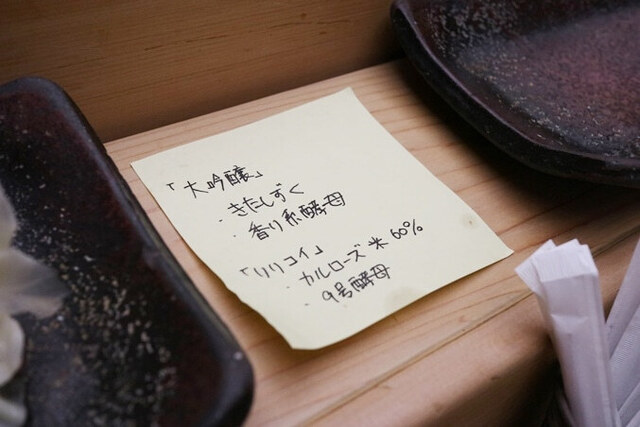 「大吟醸」
・きたしずく
・香り系酵母
「リリコイ」
・カルローズ米 60%
9号酵母